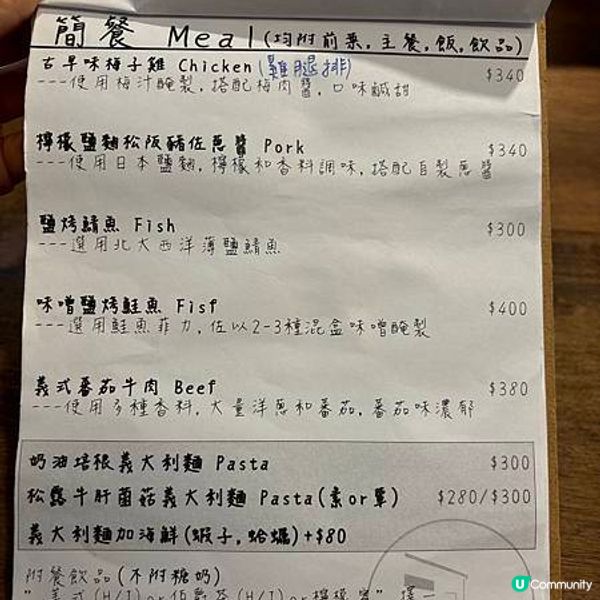 簡餐 Meal(均附前菜,主餐,飯,飲品)
古早味梅子雞 Chicken (雞腿排) $340
---使用梅汁醃製,搭配梅肉醬,口味鹹甜
檸檬鹽麴松阪豬佐蔥醬 Pork $340
---使用日本鹽麴,檸檬和香料調味,搭配自製蔥醬
鹽烤鯖魚 Fish $300
---選用北大西洋薄鹽鯖魚
味噌鹽烤鮭魚 Fisf $400
---選用鮭魚菲力,佐以2-3種混盒味噌醃製
義式番茄牛肉 Beef $380
---使用多種香料,大量洋蔥和番茄,番茄味濃郁
奶油培根義大利麵 Pasta $300
松露牛肝菌菇義大利麵 Pasta(素or葷) $280/$300
義大利麵加海鮮(蝦子,蛤蠣)+$80
附餐飲品(不附糖奶)
美式(H/I)or伯爵茶(H/I)or檸檬 擇一
U Community